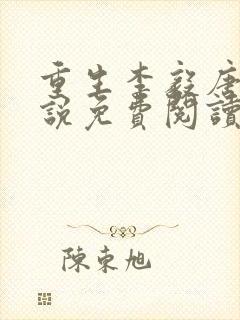 重生李毅唐
說免費閱讀
陳東旭